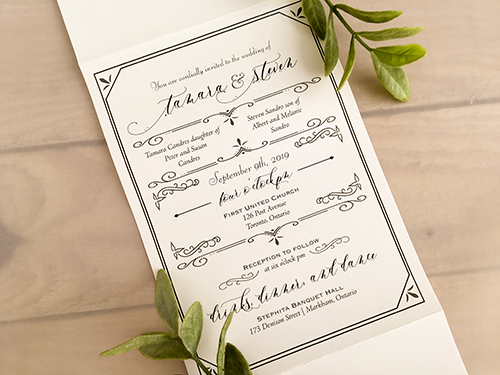 You are cordially invited to the wedding of
tamara & steven
Tamara Candres daughter of
Peter and Susan
Candres
Steven Sandro son of
Albert and Melanie
Sandro
September 9th, 2019
four o'clock pm
First United Church
126 Post Avenue
Toronto, Ontario
Reception to follow
at six o'clock pm
drinks, dinner, and dance
Stephita Banquet Hall
173 Denison Street | Markham, Ontario